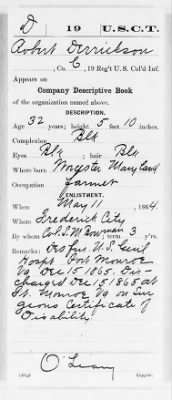 D 19 U.S.C.T.
Robert Derrickson
, Co. C, 19 Reg't U. S. Col'd Inf.
Appears on
Company Descriptive Book
of the organization named above.
DESCRIPTION.
Age 32 years; height 5 feet 10 inches.
Complexion Blk
Eyes Blk ; hair Blk
Where born Worcester Maryland
Occupation Farmer
ENLISTMENT.
When May 11, 1864
Where Frederick City
By whom Col. S. M. Bowman; term 3 y'rs.
Remarks: Dis fm. U.S. Genl
Hospt Fort Monroe
Va Dec 15 1865. Dis-
charged Dec 15 1865 at
Ft. Monroe Va on Sur
geons Certificate of
Disability.
O'Leary